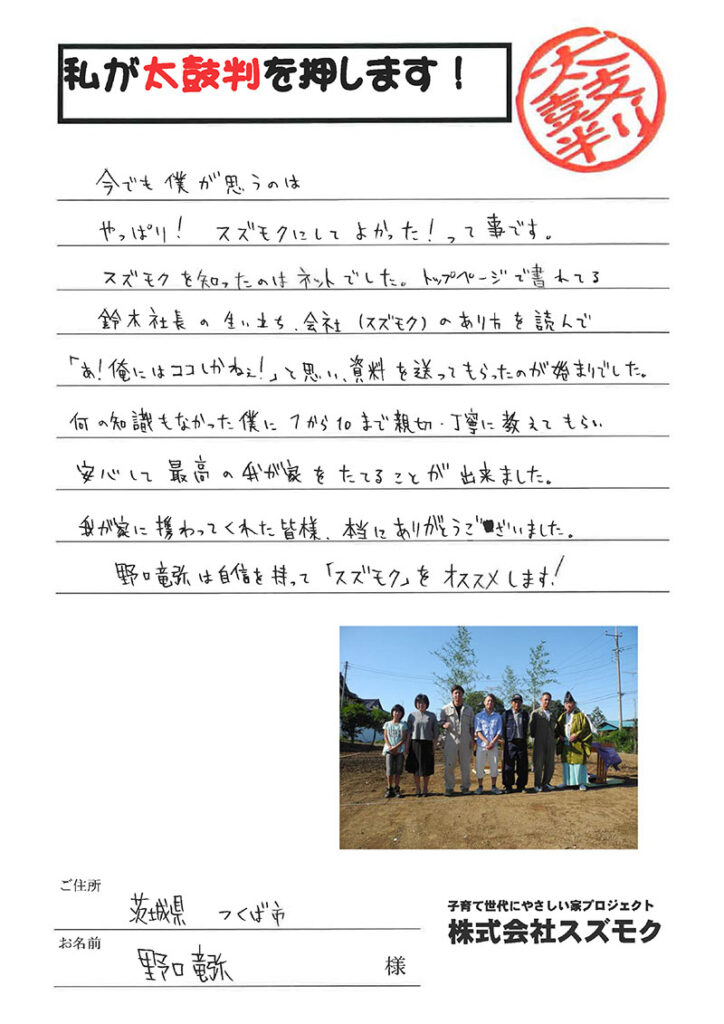 私が太鼓判を押します！
太鼓判
今でも僕が思うのは
やっぱり！ スズモクにして よかった！って事です。
スズモクを知ったのはネットでした。トップページで書れてる
鈴木社長の生い立ち、会社（スズモク）のあり方を読んで
「あ！俺にはココしかねぇ！」と思い、資料を送ってもらったのが始まりでした。
何の知識もなかった僕に1から10まで親切・丁寧に教えてもらい
安心して最高の我が家をたてることが出来ました。
我が家に携わってくれた皆様、本当にありがとうございました。
野口竜弥は自信を持って「スズモク」をオススメします！
ご住所
茨城県 つくば市
お名前
野口竜弥 様
子育て世代にやさしい家プロジェクト
株式会社スズモク